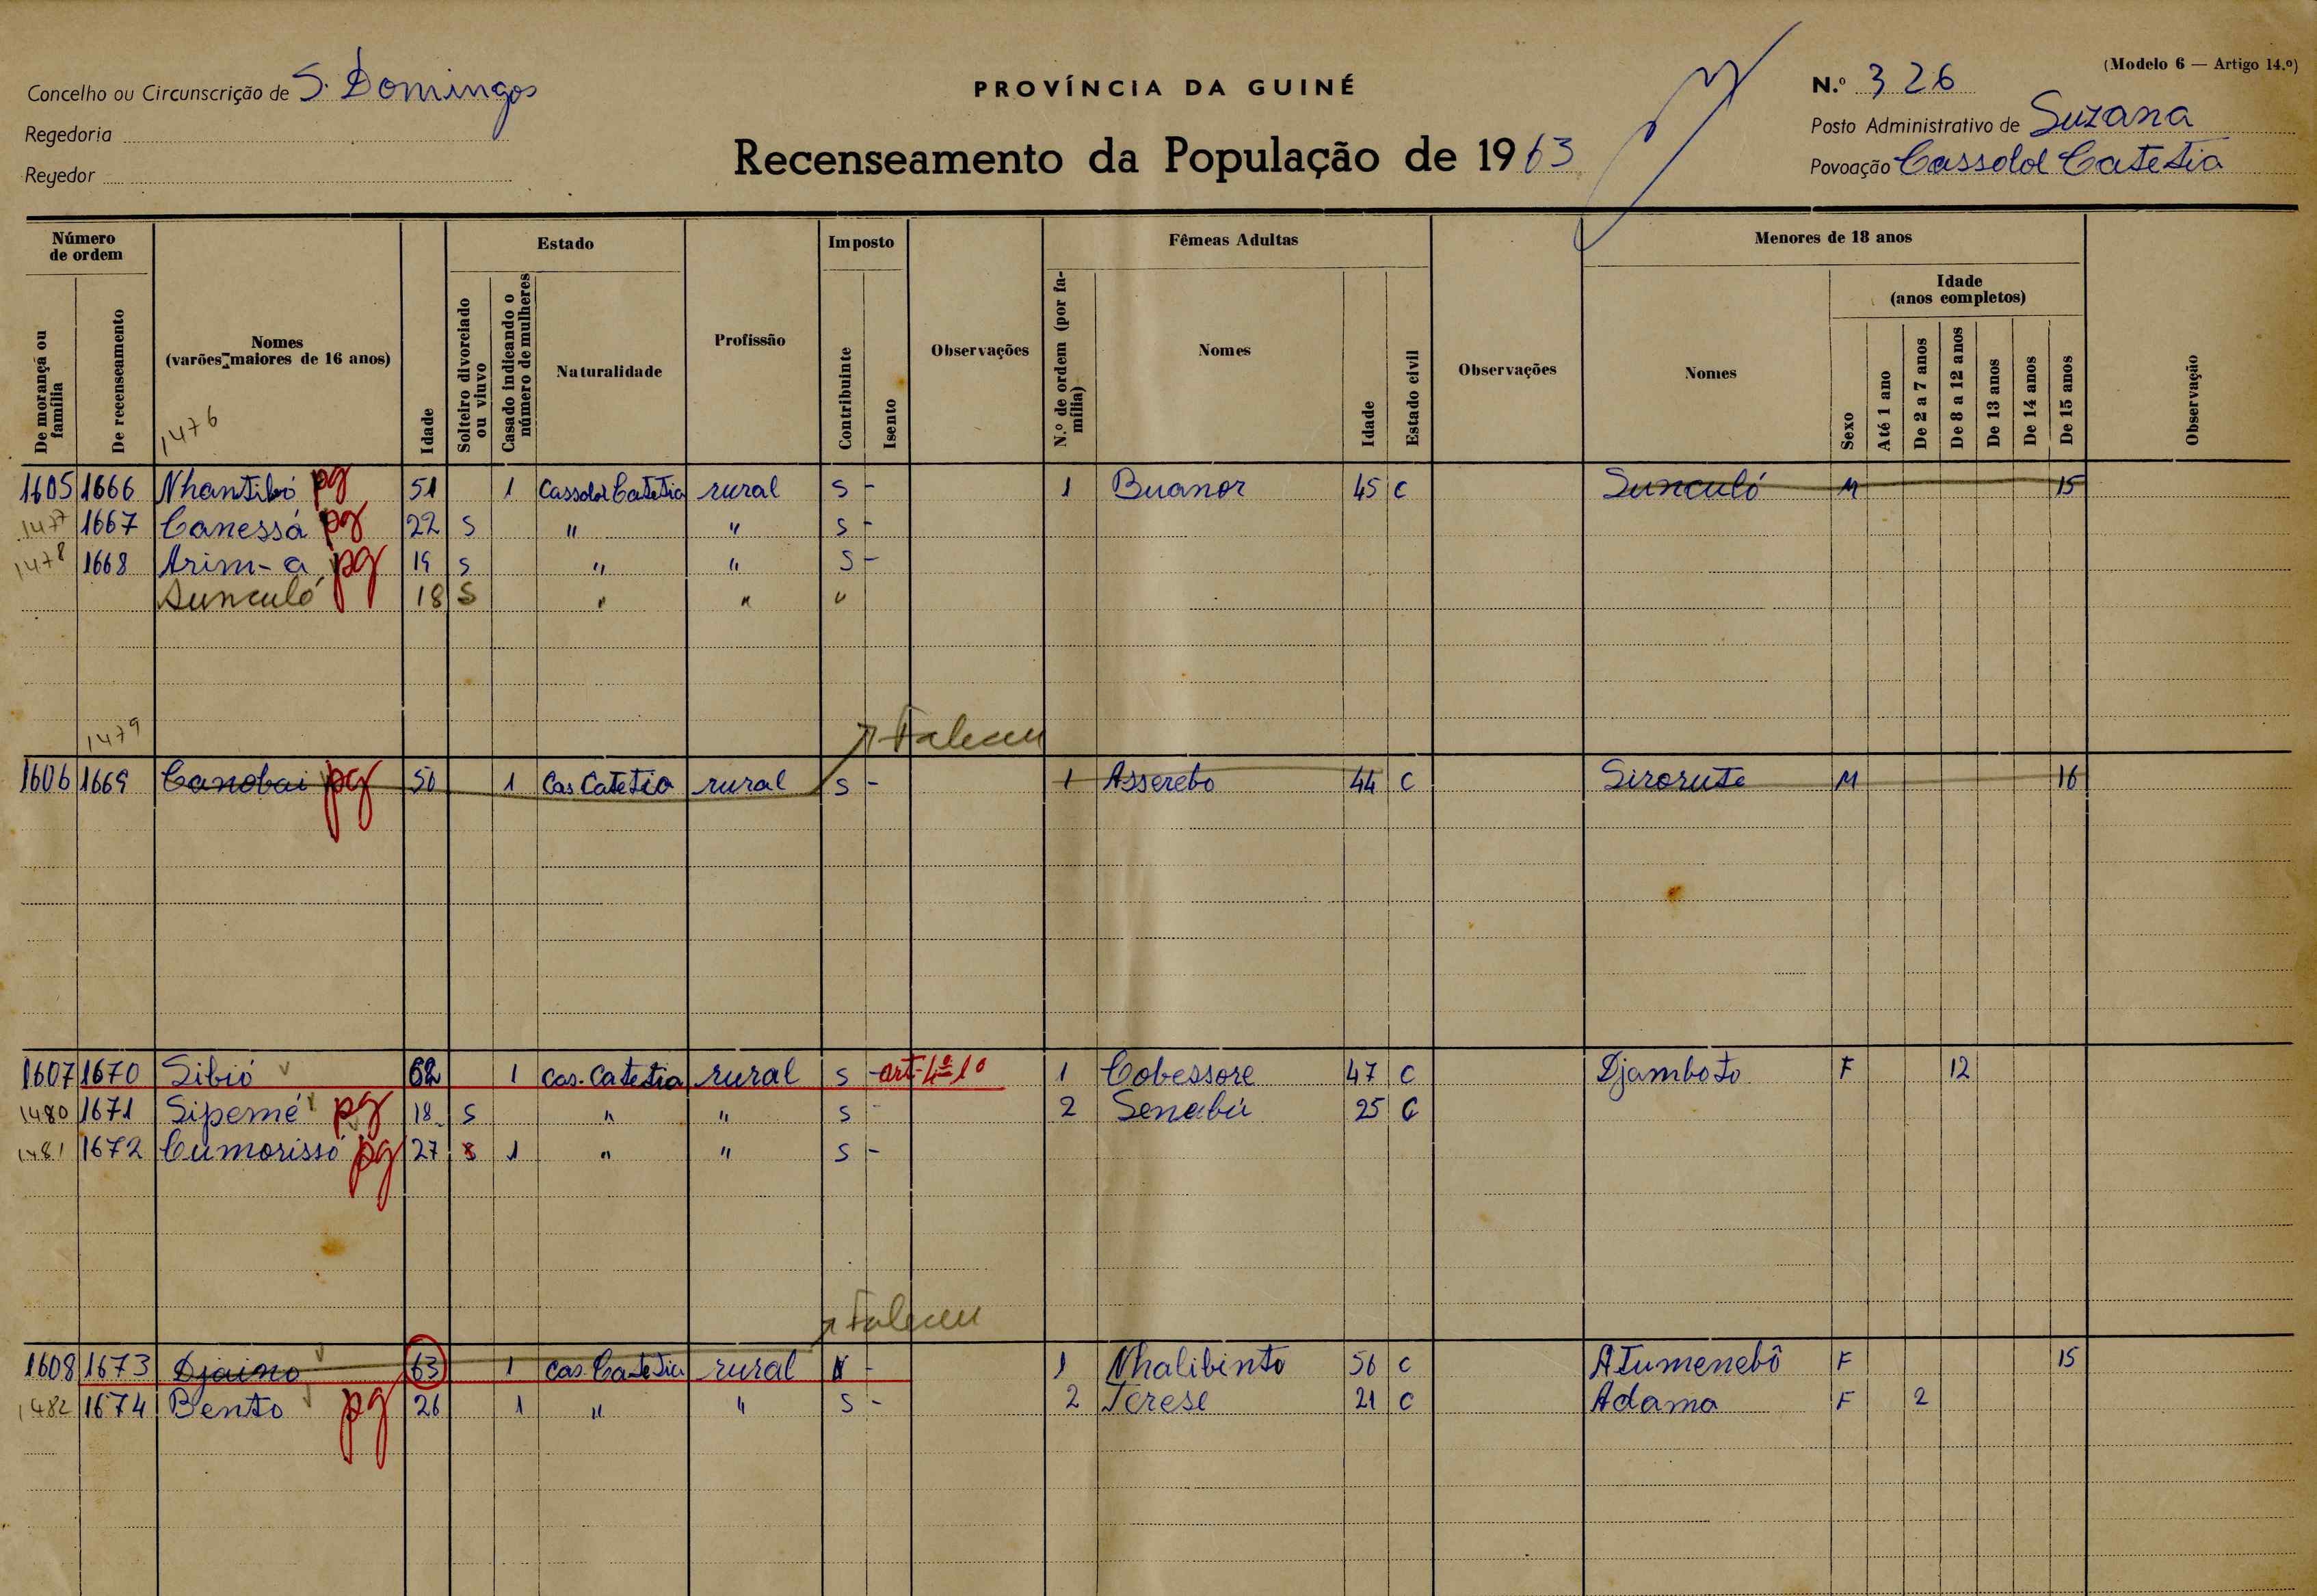 (Modelo 6 — Artigo 14.º)
Concelho ou Circunscrição de S. Domingos
PROVÍNCIA DA GUINÉ
N.º 326
Regedoria
Posto Administrativo de Suzana
Recenseamento da População de 1963
Regedor
Povoação Cassolol Catetia
Número de ordem
Estado
Imposto
Fêmeas Adultas
Menores de 18 anos
De morança ou família
De recenseamento
Nomes (varões maiores de 16 anos)
1476
Idade
Solteiro divorciado ou viuvo
Casado indicando o número de mulheres
Naturalidade
Profissão
Contribuinte
Isento
Observações
N.º de ordem (por família)
Nomes
Idade
Estado civil
Observações
Nomes
Sexo
Idade (anos completos)
Até 1 ano
De 2 a 7 anos
De 8 a 12 anos
De 13 anos
De 14 anos
De 15 anos
Observação
1605 1666 Nhantibó pg 51 1 Cassolol Catetia rural s - 1 Buanor 45 C Sunculó M 15
1477 1667 Canessá pg 22 S " " s -
1478 1668 Arim-a pg 19 s " " S -
Sunculó 18 S " " "
1479 Faleceu
1606 1669 Canobai pg 50 1 Cas Catetia rural s - 1 Asserebo 44 C Sirorute M 16
1607 1670 Sibió 62 1 Cas. Catetia rural s - art-4º 1º 1 Cobessore 47 C Djamboto F 12
1480 1671 Sipemé pg 18 S " " s - 2 Senabú 25 C
1481 1672 Cumorissó pg 27 s 1 " " s -
Faleceu
1608 1673 Djaino 63 1 Cas. Catetia rural - 1 Nhalibinto 56 C Atumenebô F 15
1482 1674 Bento pg 26 1 " " s - 2 Terese 21 C Adama F 2